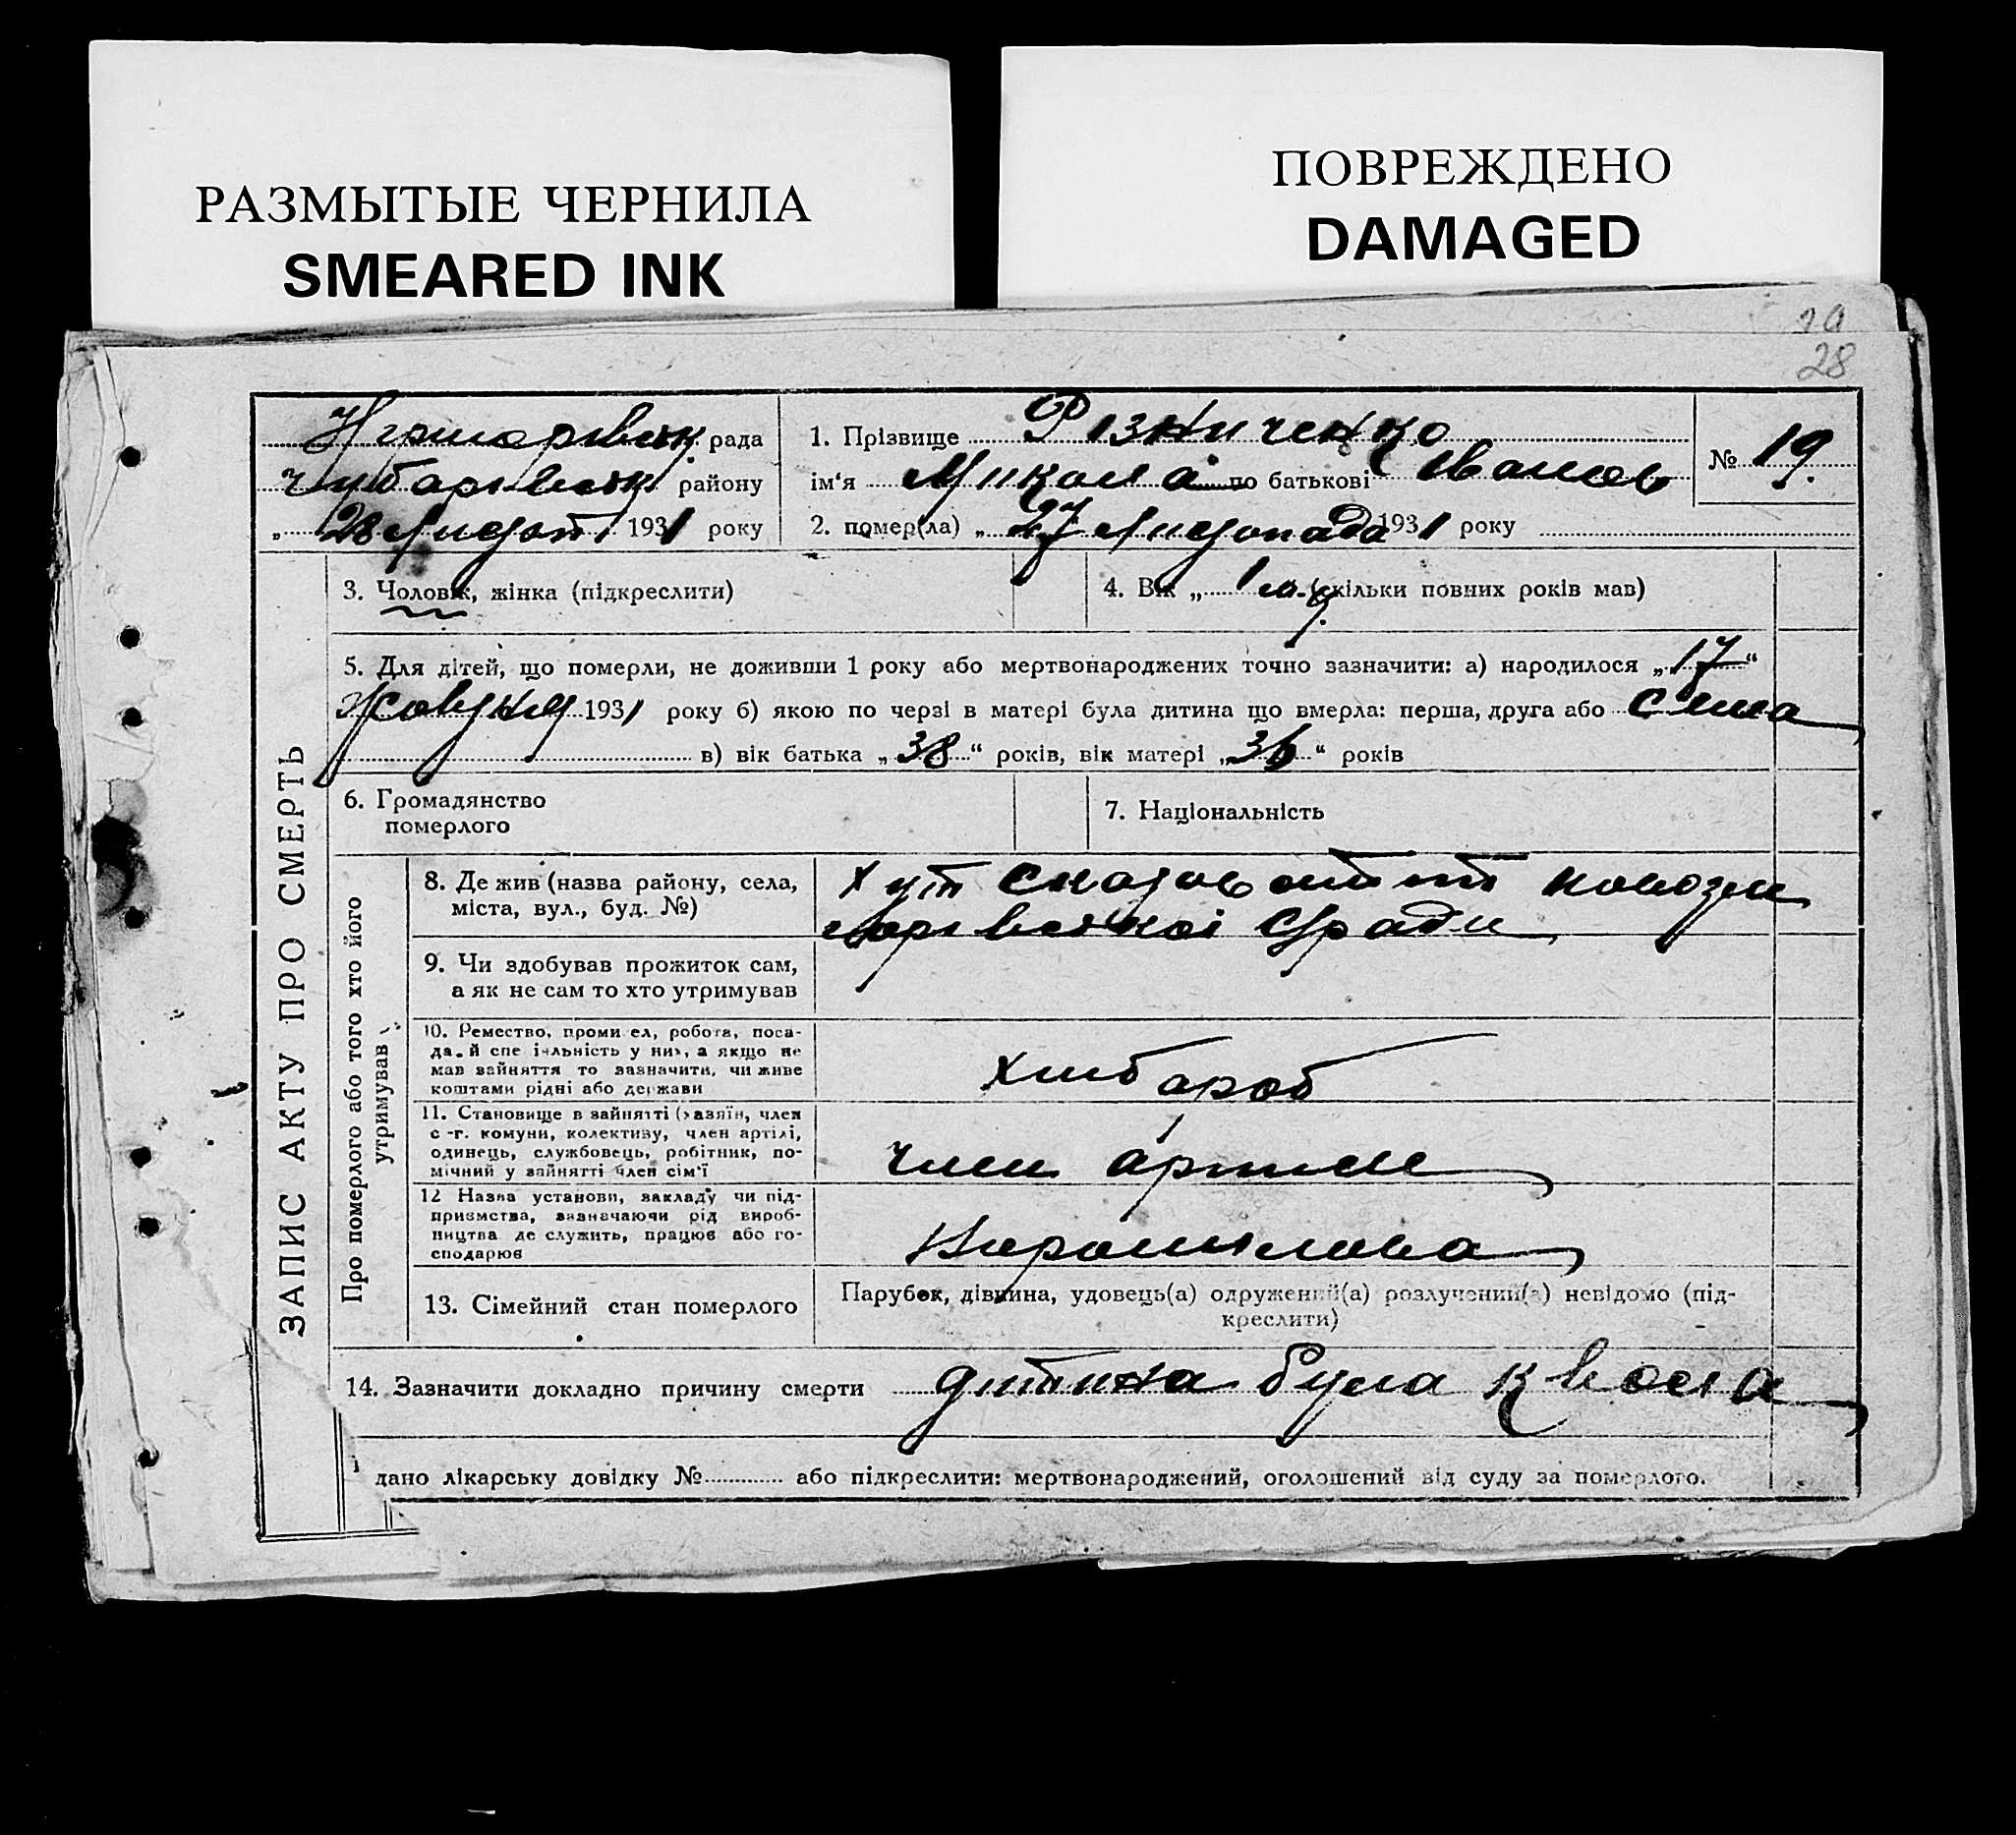 РАЗМЫТЫЕ ЧЕРНИЛА
SMEARED INK
ПОВРЕЖДЕНО
DAMAGED
29
28
рада
району
„ 28 Листоп 1931 року
1. Прізвище Різниченко
ім'я Микола по батькові Іванов
2. помер(ла) „ 27 Листопада 1931 року
№ 19.
ЗАПИС АКТУ ПРО СМЕРТЬ
3. Чоловік, жінка (підкреслити)
4. Вік „ 1 м. (скільки повних років мав)
5. Для дітей, що померли, не доживши 1 року або мертвонароджених точно зазначити: а) народилося „ 17 “
Жовтня 1931 року б) якою по черзі в матері була дитина що вмерла: перша, друга або сьома
в) вік батька „ 38 “ років, вік матері „ 36 “ років
6. Громадянство
померлого
7. Національність
Про померлого або того хто його
утримував
8. Де жив (назва району, села,
міста, вул., буд. №)
Хут
Сради
9. Чи здобував прожиток сам,
а як не сам то хто утримував
10. Ремество, промисел, робота, поса-
да й спеціяльність у них, а якщо не
мав зайняття то зазначити, чи живе
коштами рідні або держави
Хлібароб
11. Становище в зайнятті (хазяїн, член
с.-г. комуни, колективу, член артілі,
одинець, службовець, робітник, по-
мічний у зайнятті член сім'ї
член артіле
12 Назва установи, закладу чи під-
приємства, зазначаючи рід вироб-
ництва де служить, працює або го-
сподарює
Ворошилова
13. Сімейний стан померлого
Парубок, дівчина, удовець(а) одружений(а) розлучений(а) невідомо (під-
креслити)
14. Зазначити докладно причину смерти дитина була квола
дано лікарську довідку № або підкреслити: мертвонароджений, оголошений від суду за померлого.